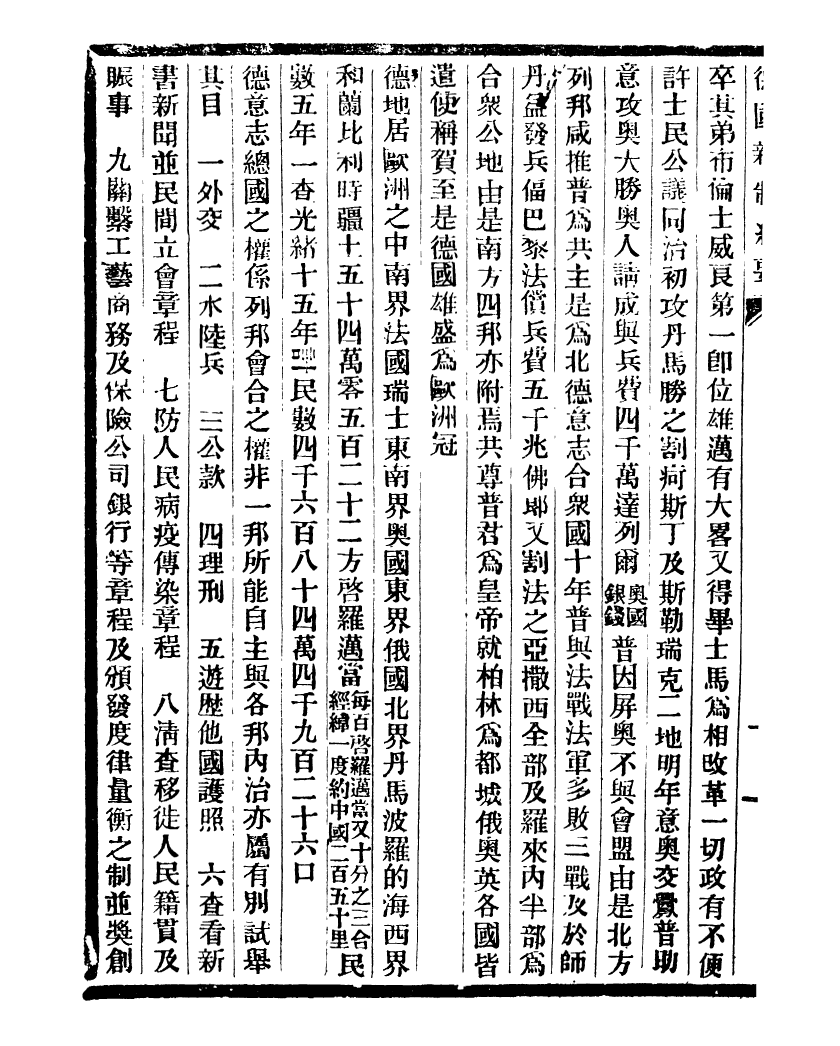 德國新制紀要
卒其弟布倫士威良第一卽位雄邁有大畧又得畢士馬爲相改革一切政有不便
許士民公議同治初攻丹馬勝之割荷斯丁及斯勒瑞克二地明年意奧交釁普助
意攻奧大勝奧人請成與兵費四千萬達列爾奧國銀錢普因屏奧不與會盟由是北方
列邦咸推普爲共主是爲北德意志合衆國十年普與法戰法軍多敗三戰及於師
丹盆發兵偪巴黎法償兵費五千兆佛郎又割法之亞撒西全部及羅來內半部爲
合衆公地由是南方四邦亦附焉共尊普君爲皇帝就柏林爲都城俄奧英各國皆
遣使稱賀至是德國雄盛爲歐洲冠
德地居歐洲之中南界法國瑞士東南界奧國東界俄國北界丹馬波羅的海西界
和蘭比利時疆土五十四萬零五百二十二方啓羅邁當每百啓羅邁當又十分之三合經緯一度約中國二百五十里民
數五年一查光緒十五年民數四千六百八十四萬四千九百二十六口
德意志總國之權係列邦會合之權非一邦所能自主與各邦內治亦屬有別試舉
其目　一外交　二水陸兵　三公款　四理刑　五遊歷他國護照　六查看新
書新聞並民間立會章程　七防人民病疫傳染章程　八清查移徙人民籍貫及
賑事　九關繫工藝商務及保險公司銀行等章程及頒發度律量衡之制並獎創